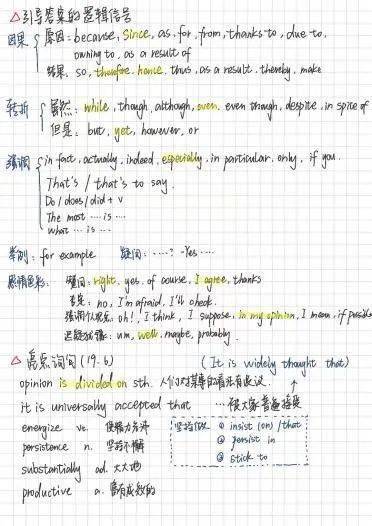 △引导答案的逻辑信号
因果 原因: because, since, as, for, from, thanks to, due to,
owning to, as a result of
结果. so, therefore, hence, thus, as a result, thereby, make
转折 虽然: while, though, although, even, even though, despite, in spite of
但是: but, yet, however, or
强调 in fact, actually, indeed, especially, in particular, only, if you.
That's / that's to say.
Do / does / did + v
The most ... is ...
What ... is ...
举例: for example 疑问: ...? -Yes...
感情色彩: 疑问: right, yes, of course, I agree, thanks
no, I'm afraid, I'll check.
强调个人观点: oh!, I think, I suppose, in my opinion, I mean, if possible
迟疑犹豫: um, well, maybe, probably.
△ 高点词句 (19.6) (It is widely thought that)
opinion is divided on sth. 人们对某事的看法有歧议. ↑
it is universally accepted that ...被大家普遍接受
energize vt. 使精力充沛
persistence n. 坚持不懈
substantially ad. 大大地
productive a. 富有成效的
坚持做 ① insist (on) / that
② persist in
③ stick to